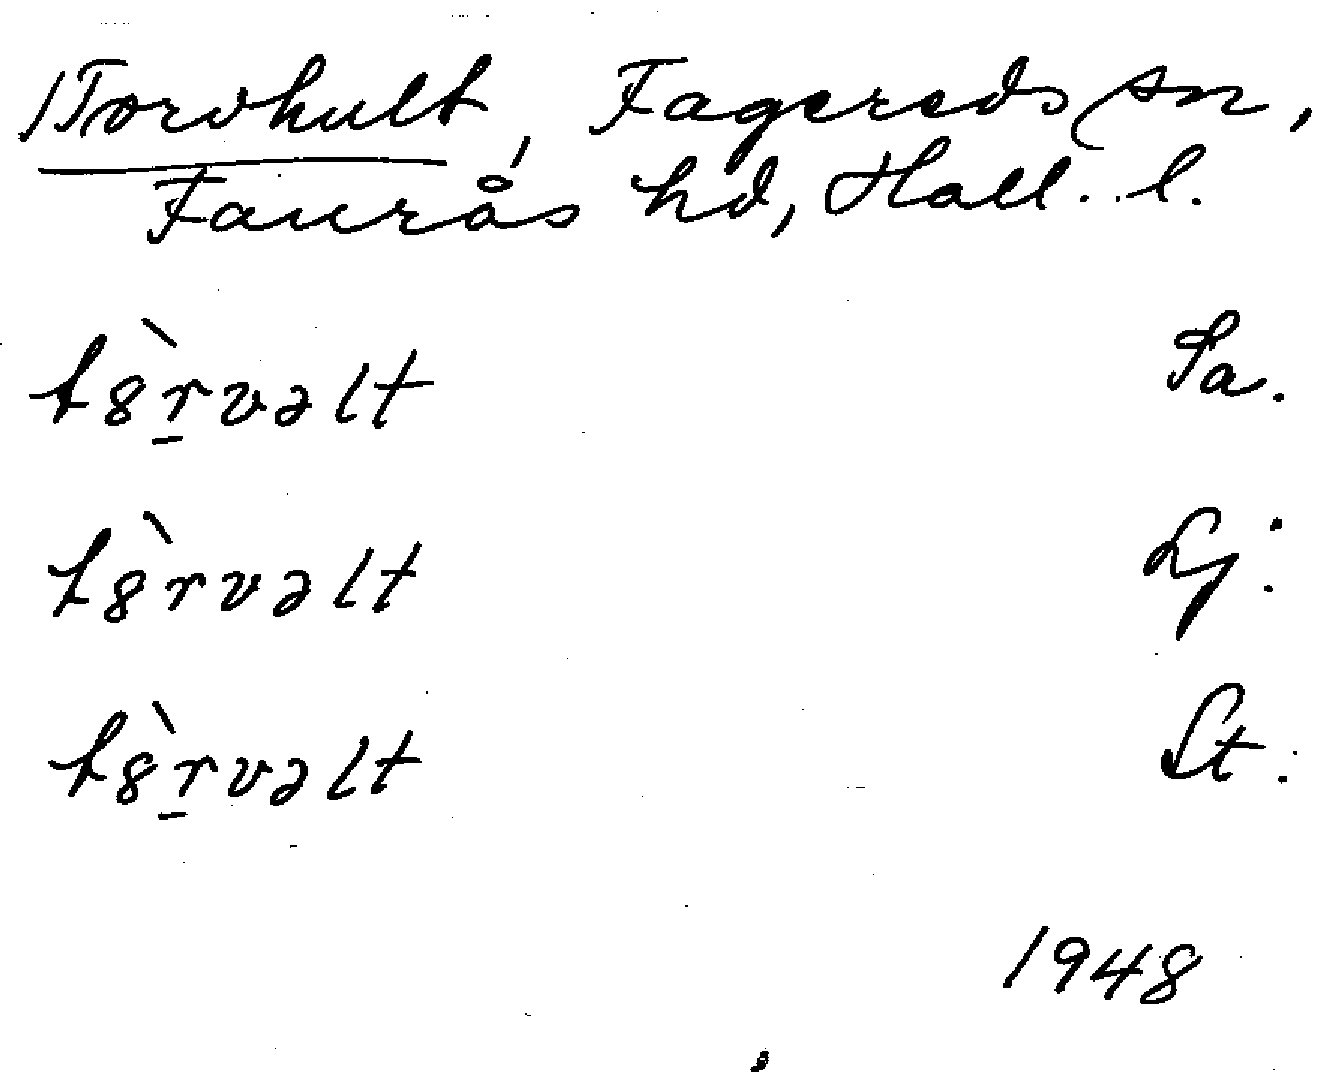 Torvhult, Fagereds sn,
Faurås hd, Hall. l.
tȣ̀r̲vəlt Sa.
tȣ̀rvəlt Lj.
tȣ̀r̲vəlt St.
1948